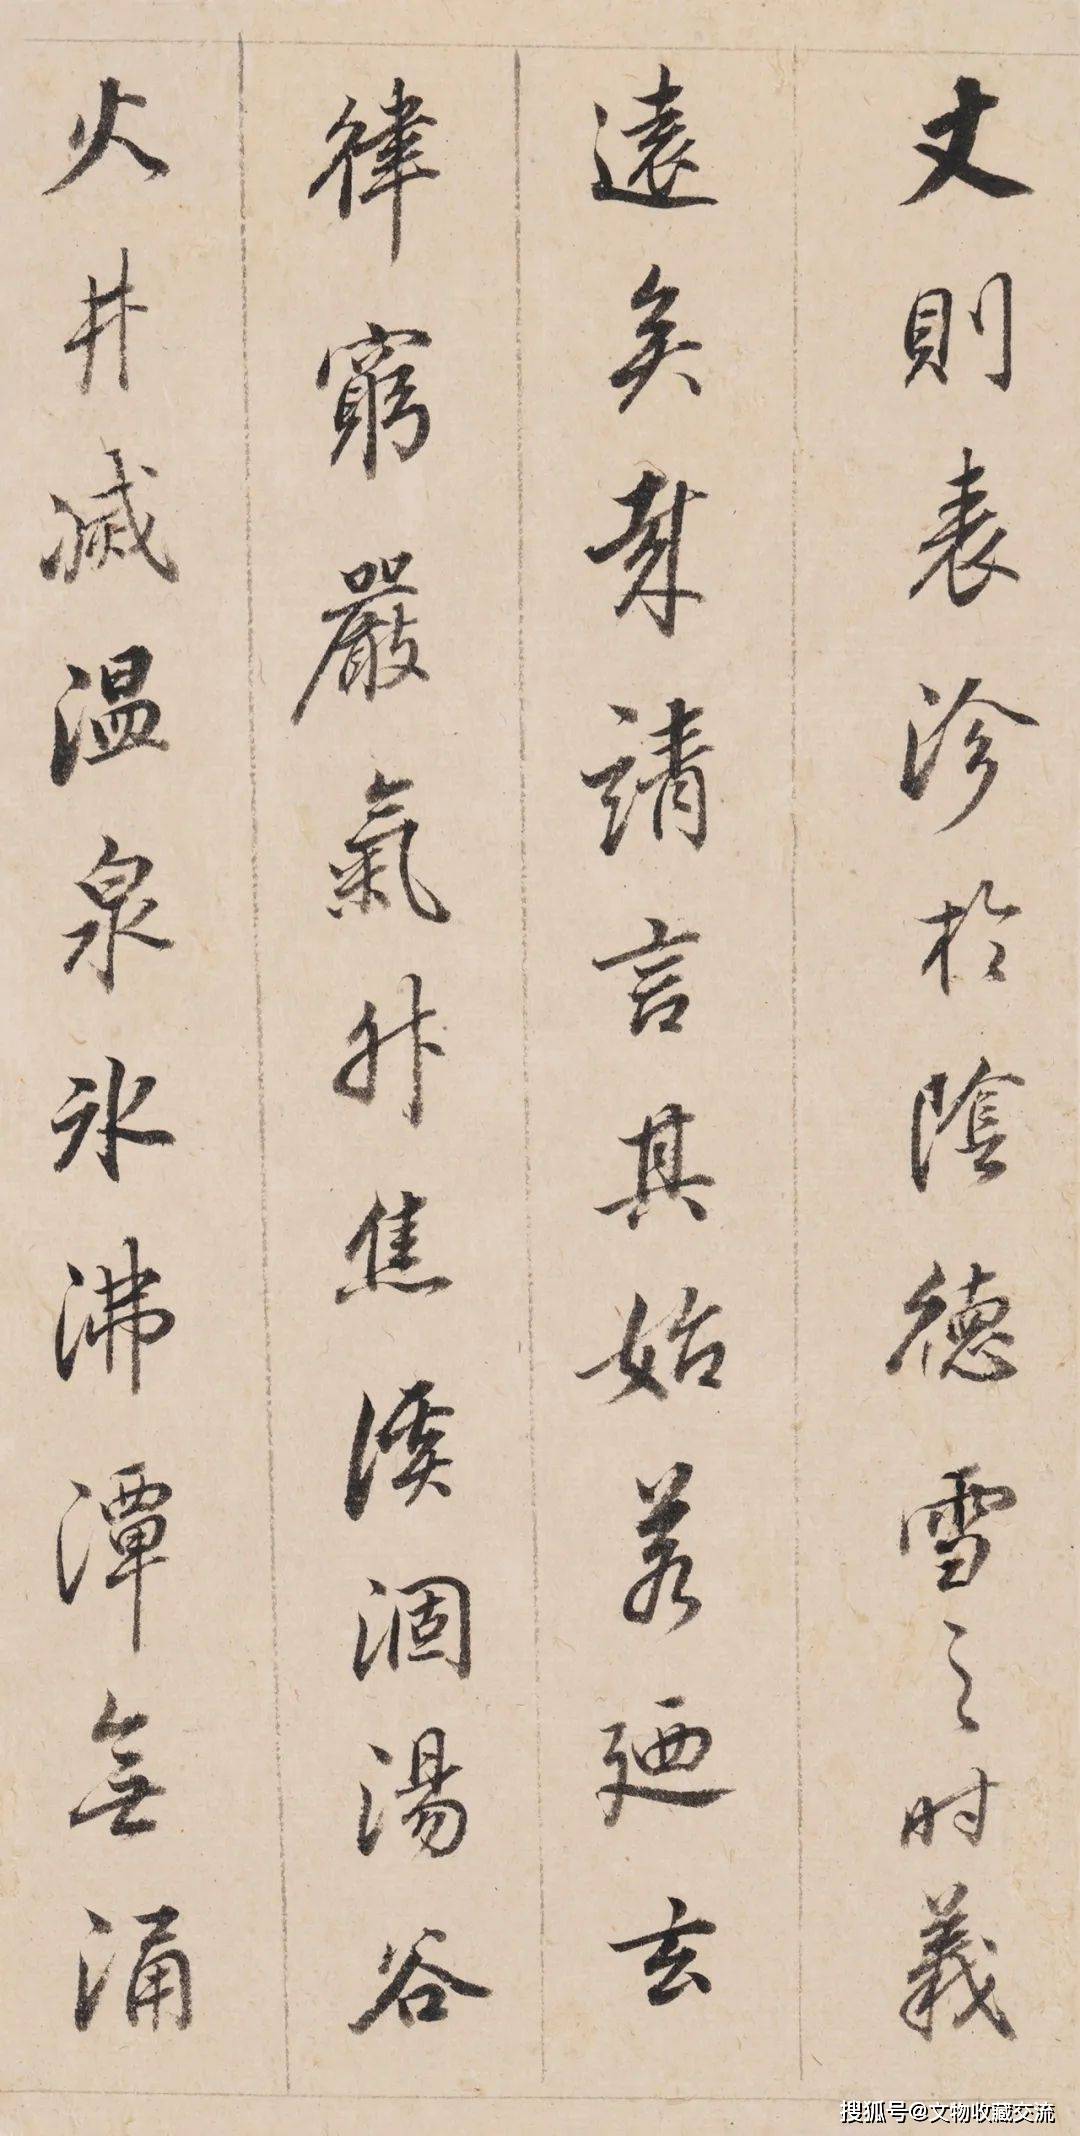 丈則表沴於陰德雪之时義
遠矣㢤請言其始若廼玄
律窮嚴氣升焦溪涸湯谷
火井滅温泉冰沸潭無涌
搜狐号@文物收藏交流